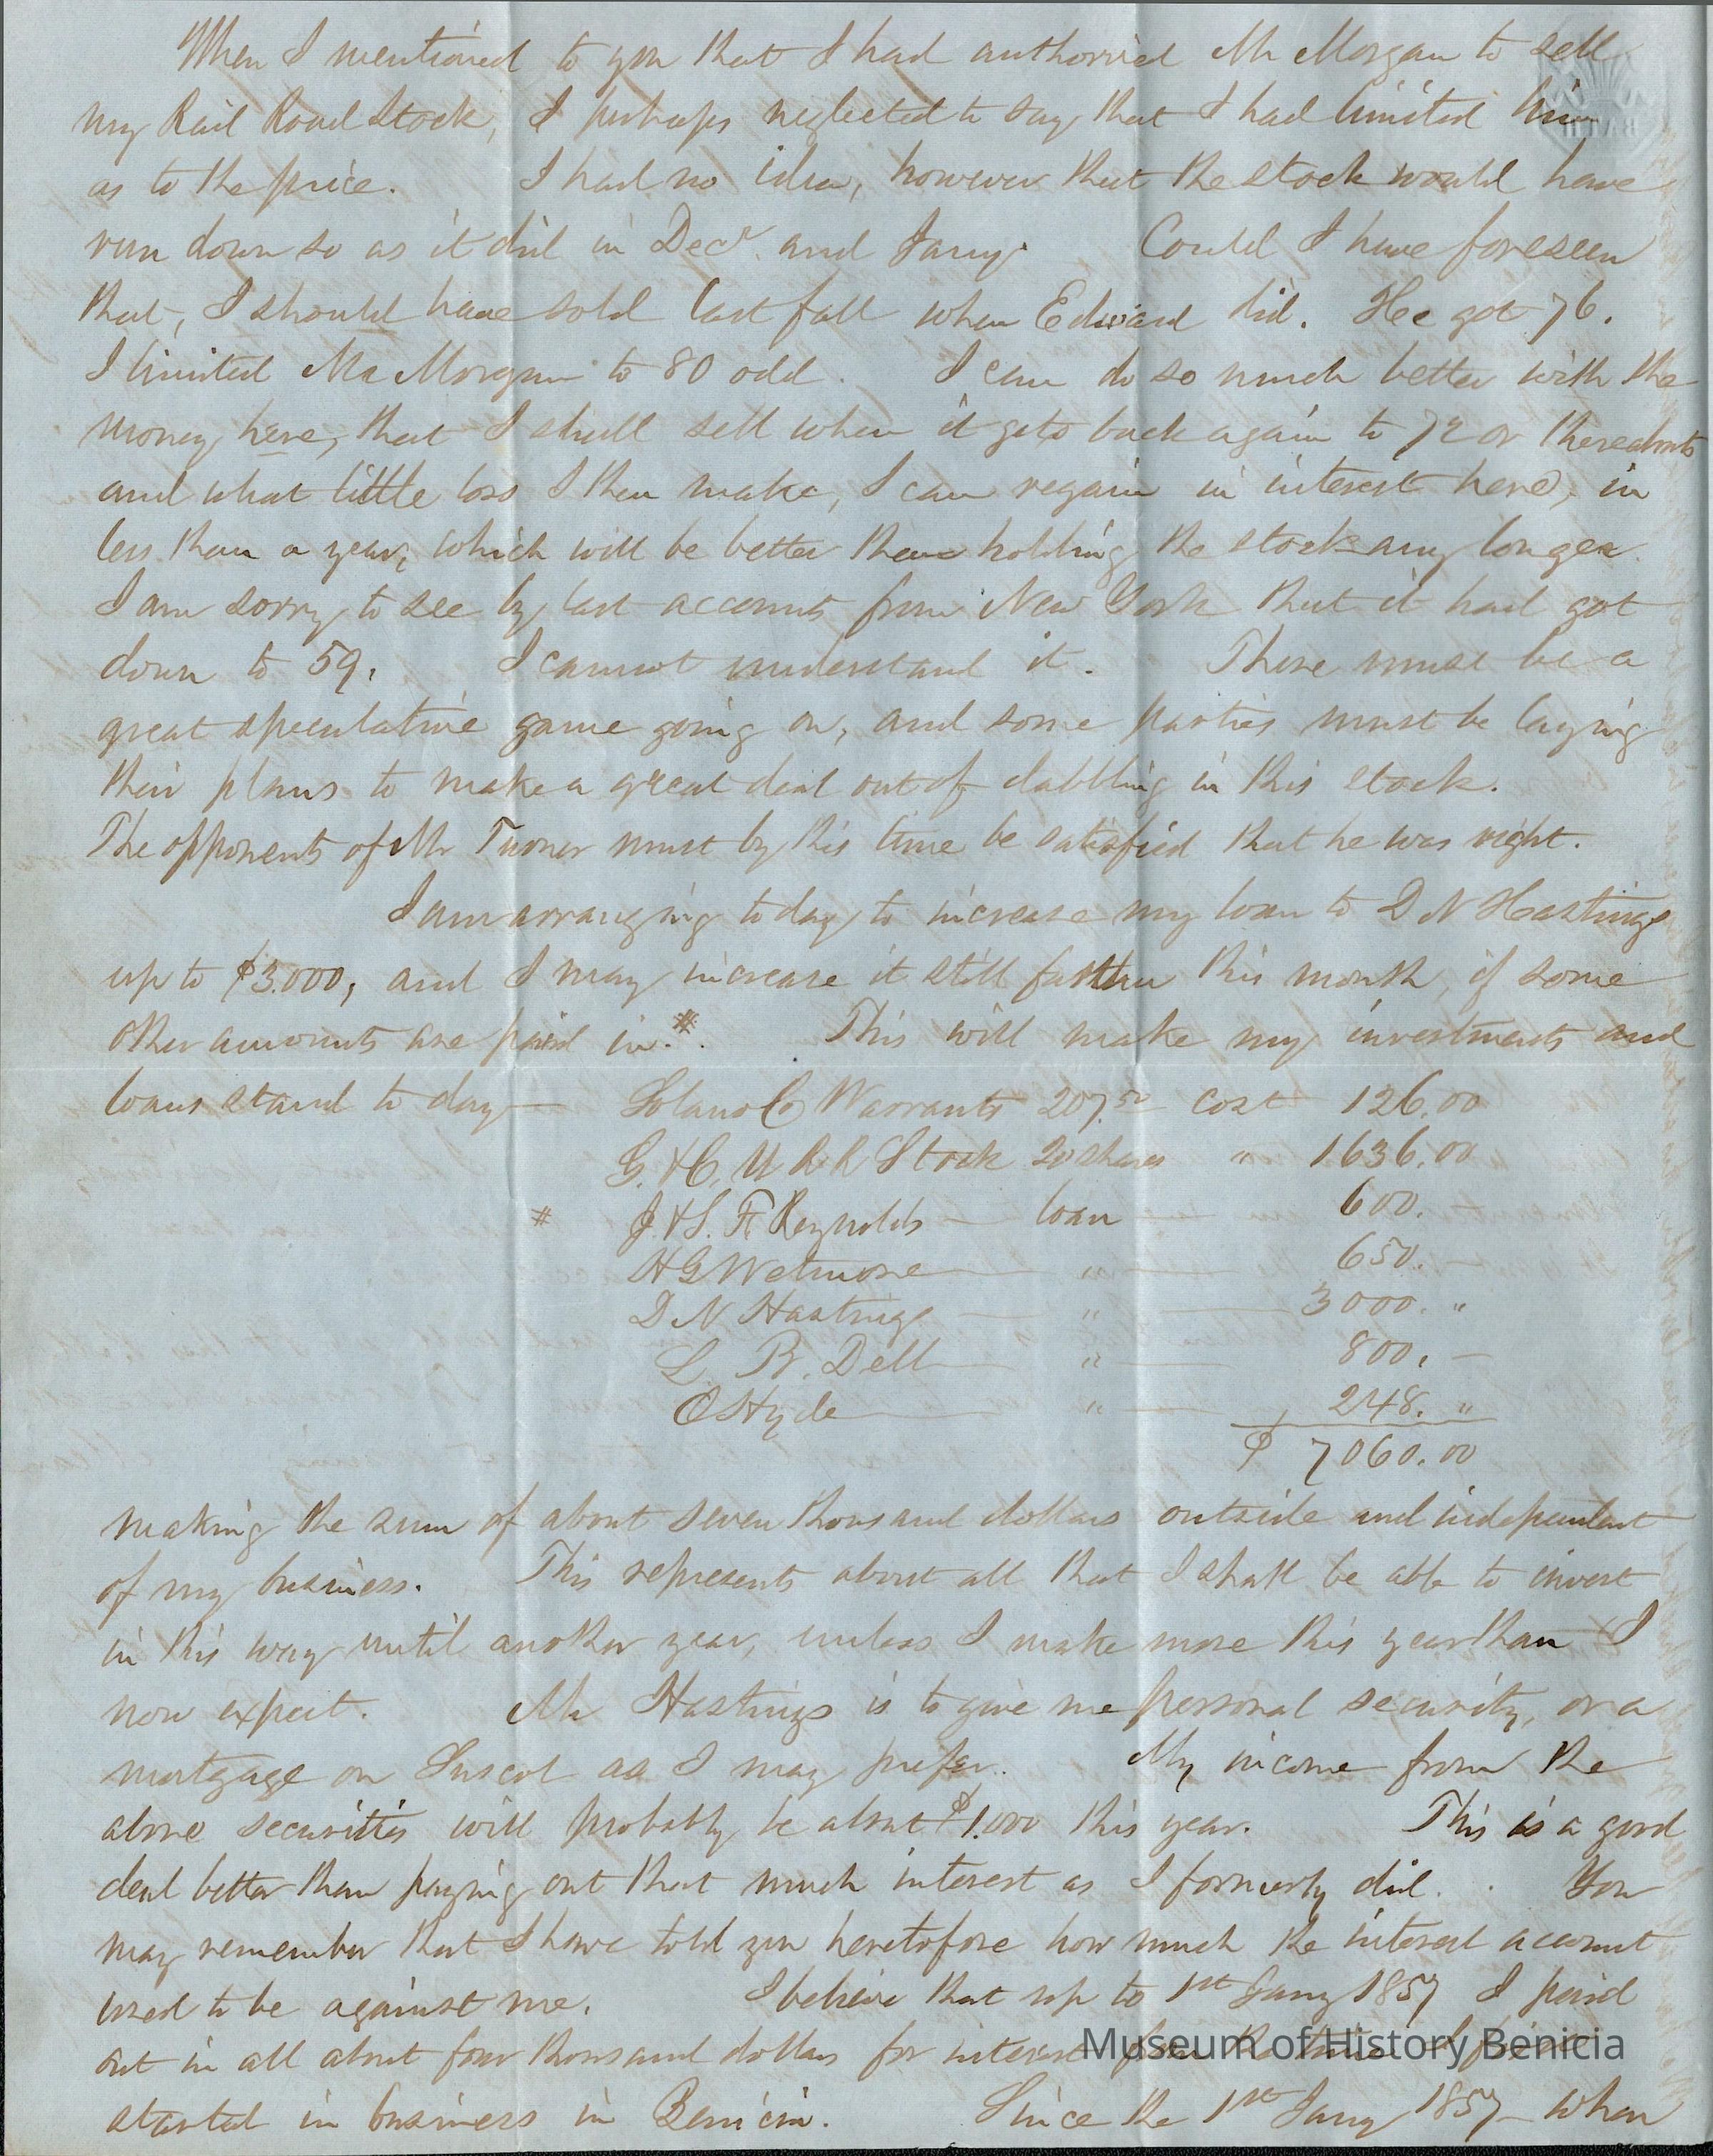 When I mentioned to you that I had authorized Mr Morgan to sell
my Rail Road Stock, I perhaps neglected to say that I had limited him
as to the price. I had no idea, however that the stock would have
run down so as it did in Decr. and Jany. Could I have foreseen
that, I should have sold last fall when Edward did. He got 76.
I limited Mr Morgan to 80 odd. I can do so much better with the
money here, that I shall sell when it gets back again to 72 or thereabouts
and what little loss I then make, I can regain in interest here, in
less than a year, which will be better than holding the stock any longer.
I am sorry to see by last accounts from New York that it had got
down to 59. I cannot understand it. There must be a
great speculative game going on, and some parties must be laying
their plans to make a great deal out of dabbling in this stock.
The opponents of Mr Turner must by this time be satisfied that he was right.
I am arranging to day to increase my loan to D N Hastings
up to $3.000, and I may increase it still further this month, if some
other amounts are paid in.# This will make my investments and
loans stand to day — Solano Co Warrants 207.50 cost 126.00
G. & C. U R R Stock 20 shares " 1636.00
# J. & S. F. Reynolds — loan — 600.
H G Wetmore — " — 650. —
D N Hastings — " — 3000. "
L. B. Dell — " — 800. —
O Hyde — " — 248. "
$ 7060.00
making the sum of about seven thousand dollars outside and independent
of my business. This represents about all that I shall be able to invest
in this way until another year, unless I make more this year than I
now expect. Mr Hastings is to give me personal security, or a
mortgage on Suscol as I may prefer. My income from the
above securities will probably be about $1.000 this year. This is a good
deal better than paying out that much interest as I formerly did. You
may remember that I have told you heretofore how much the interest account
used to be against me. I believe that up to 1st Jany 1857 I paid
out in all about four thousand dollars for interest from the time I first
started in business in Benicia. Since the 1st Jany 1857 — when
Museum of History Benicia